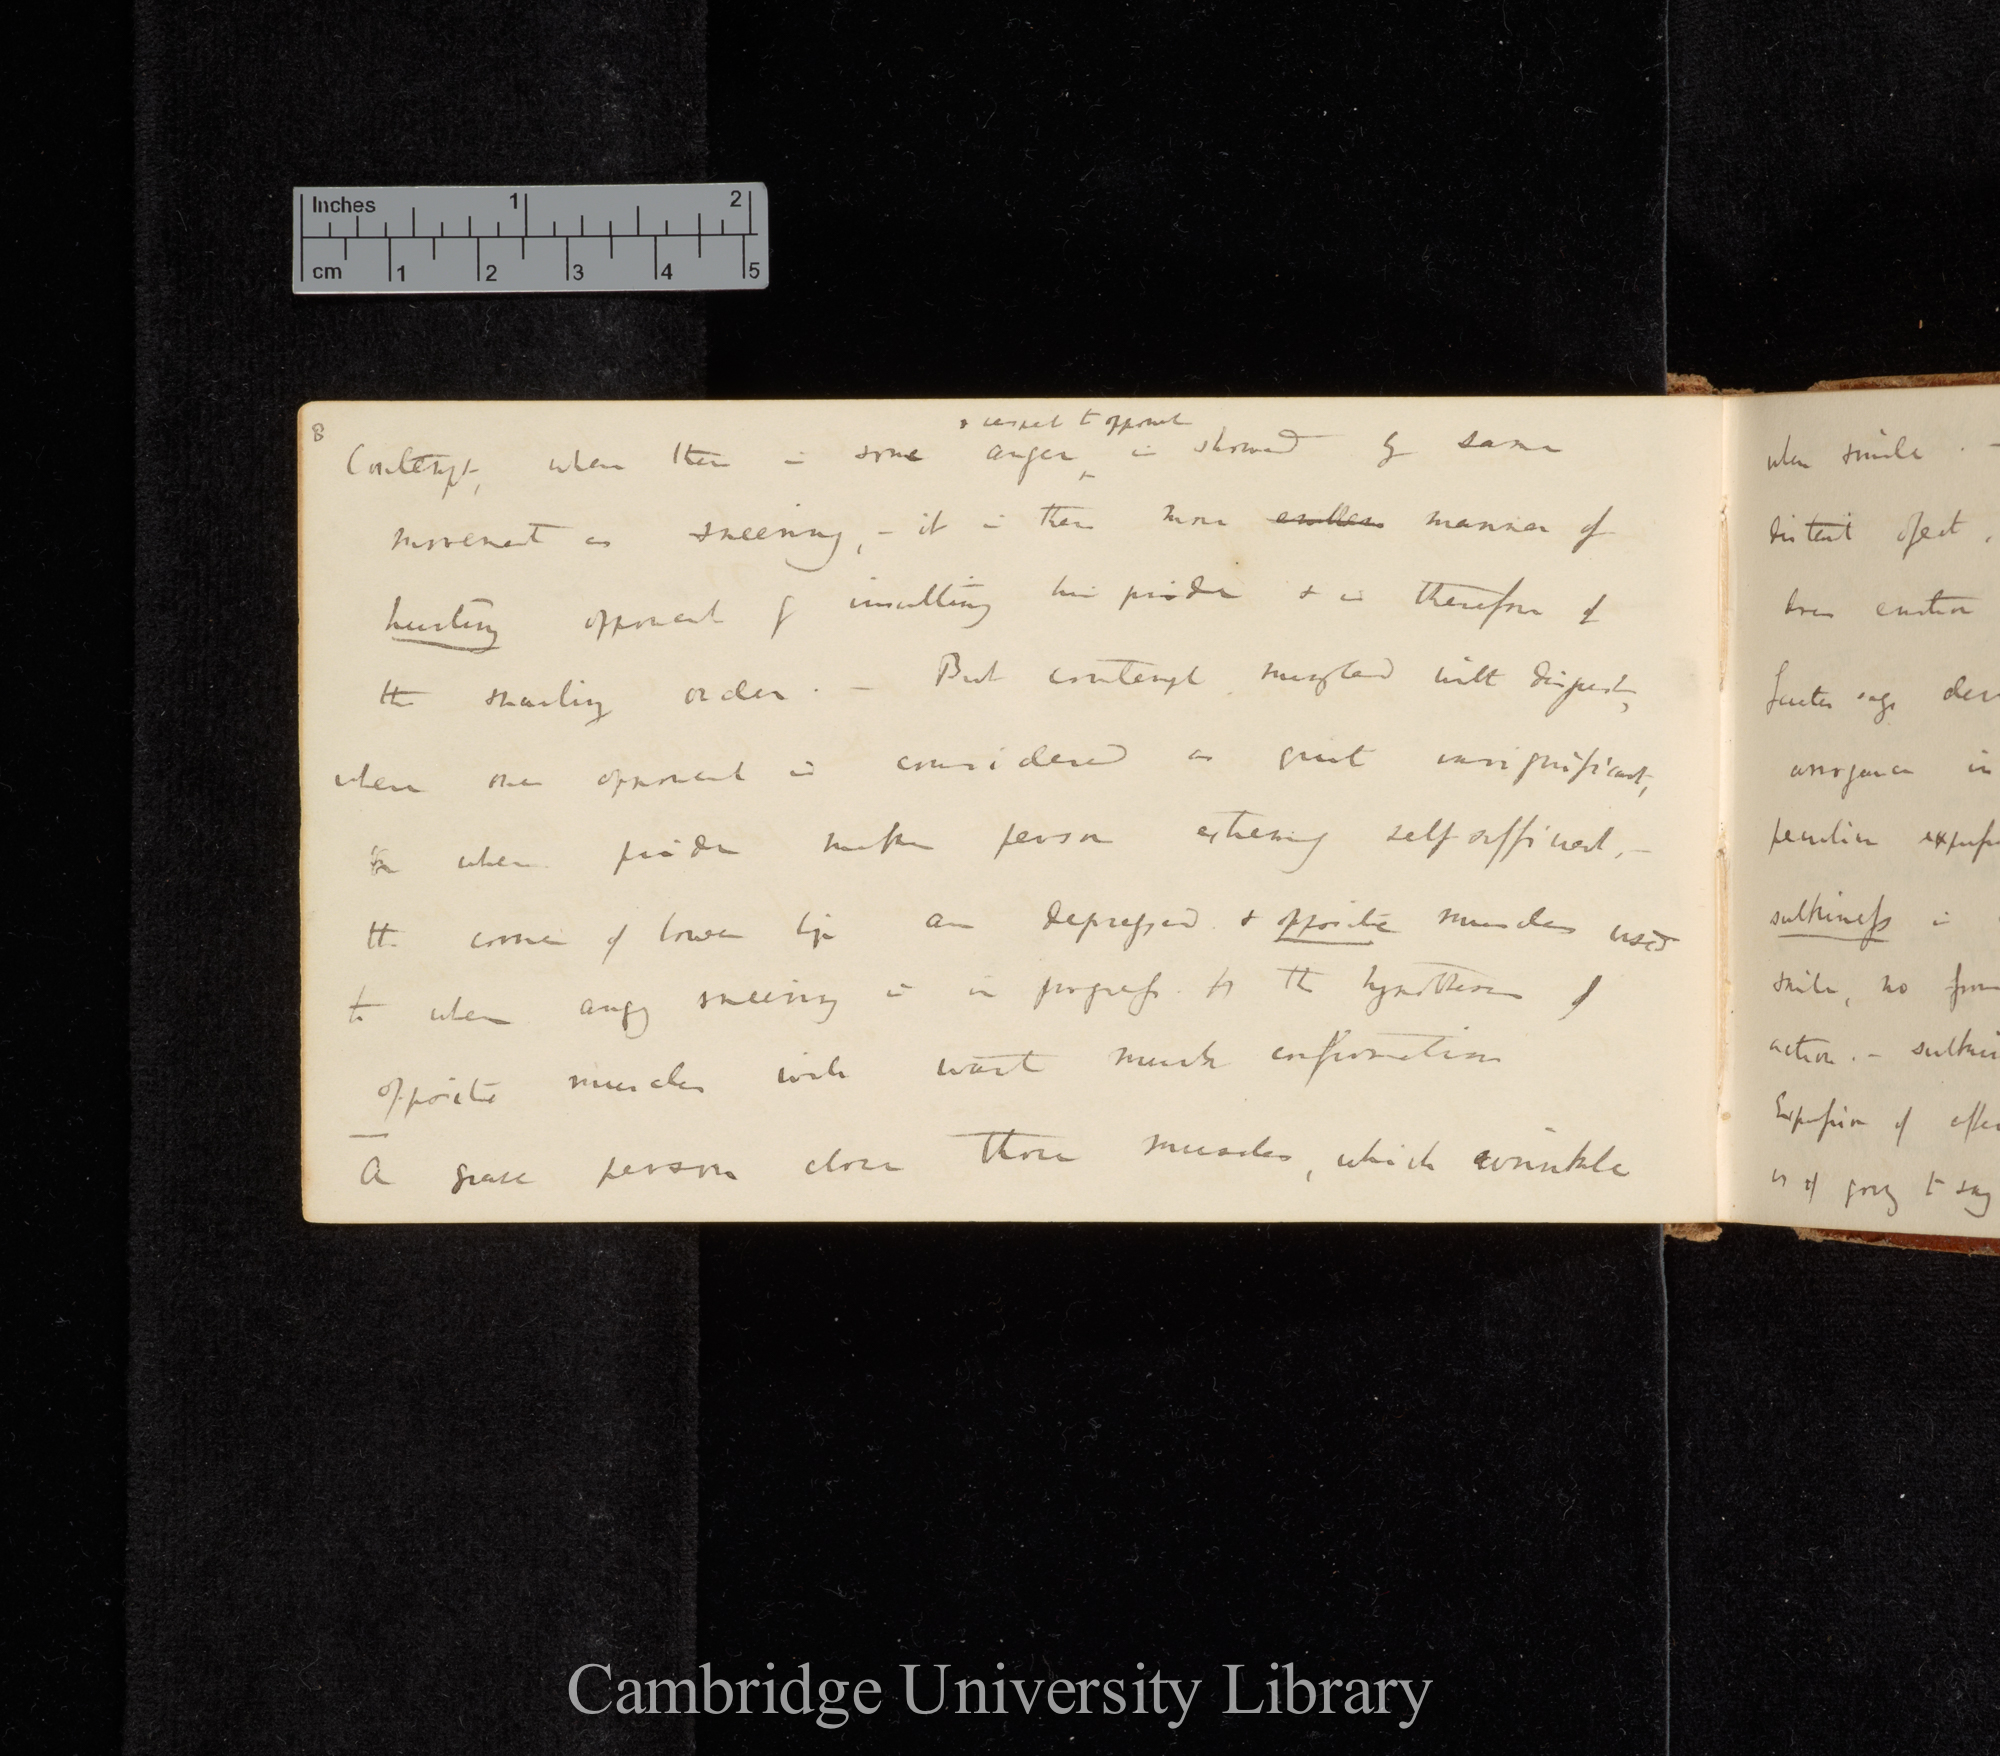 Inches 1 2
cm 1 2 3 4 5
8
& respect to opponent
Contempt, when there is some anger is showed by same
movement as sneering, – it is then more manner of
hurting opponent by insulting his pride & is therefore of
the snarling order. – But contempt mingled with disgust,
when one opponent is considered as quite insignificant,
or when pride makes person extremely self-sufficient, –
the corner of lower lip are depressed & opposite muscles used
to when angry sneering is in progress. to the hypothesis of
opposite muscles will want much confirmation
A grave person closes those muscles, which wrinkle
when smile. –
distant object,
brow
says
arrogance in
peculiar
sulkiness is
smile, no
action. –
Expression of
is of going to say
Cambridge University Library